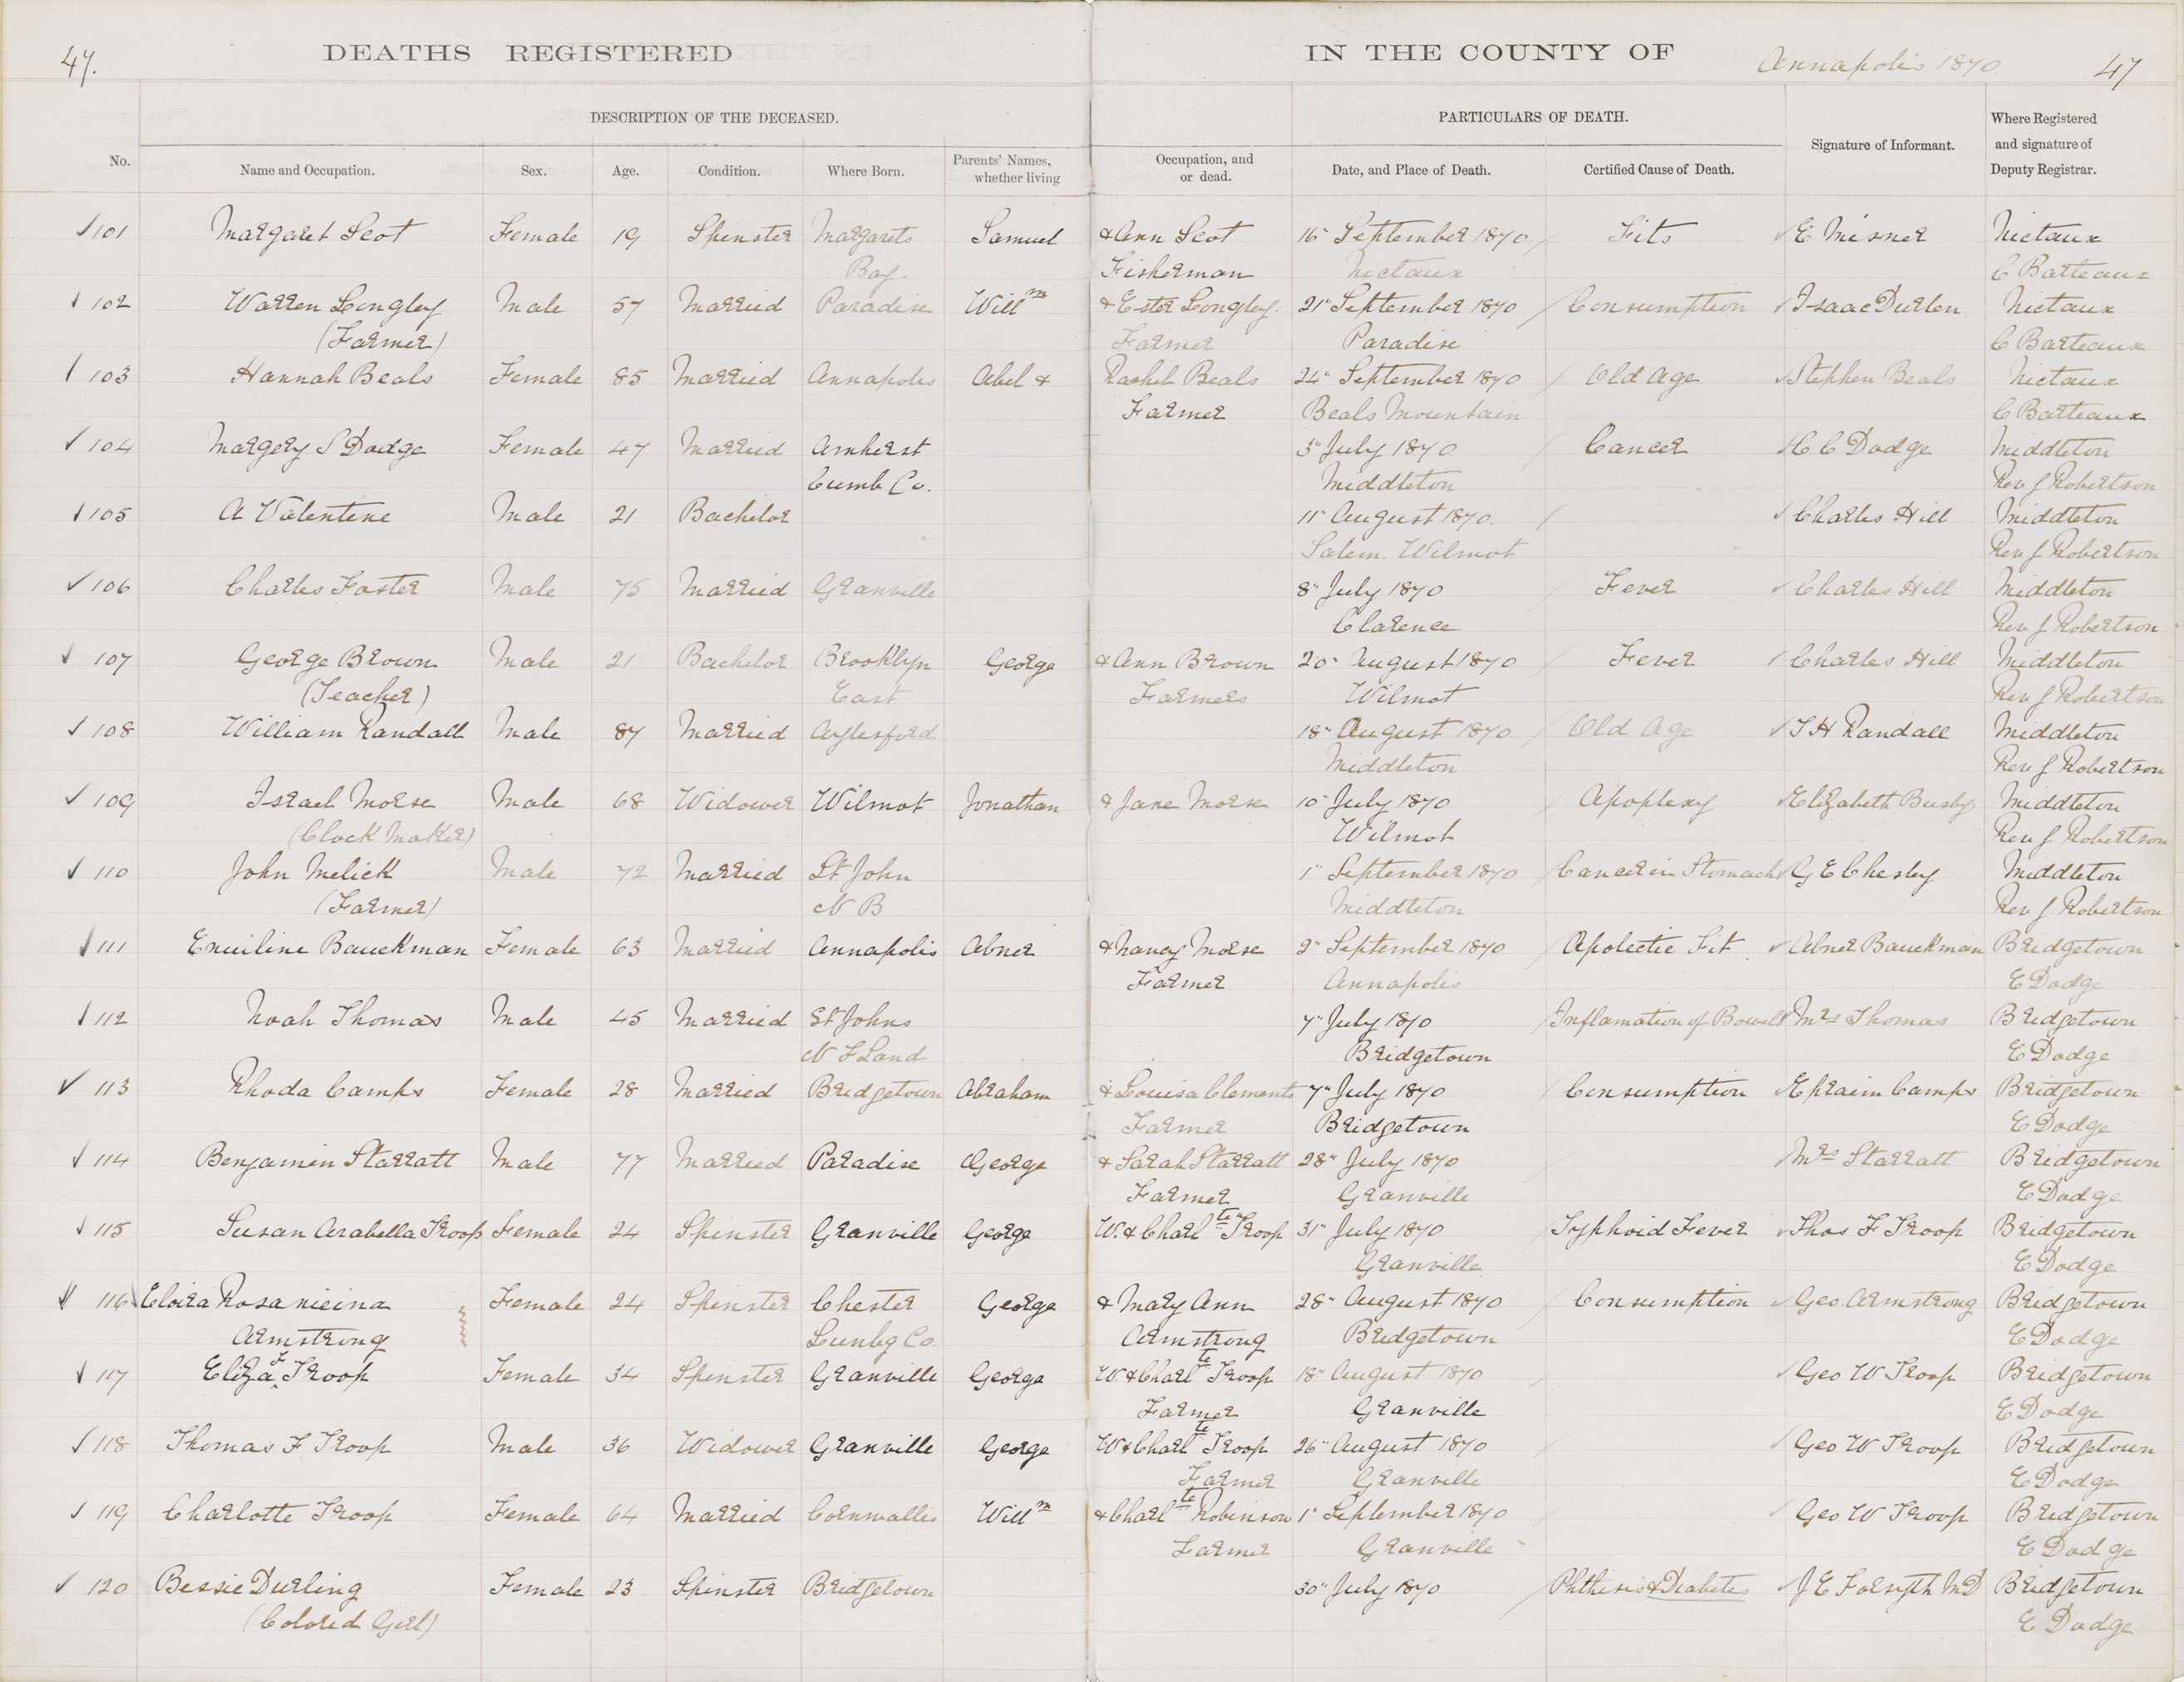 47.
DEATHS REGISTERED
IN THE COUNTY OF Annapolis 1870
47
DESCRIPTION OF THE DECEASED.
PARTICULARS OF DEATH.
No. Name and Occupation. Sex. Age. Condition. Where Born. Parents' Names, whether living Occupation, and or dead. Date, and Place of Death. Certified Cause of Death. Signature of Informant. Where Registered and signature of Deputy Registrar.
101 Margaret Scot Female 19 Spinster Margarets Samuel & Ann Scot 16" September 1870 Fits E Misner Nictaux
Bay. Fisherman Nictaux C Barteaux
102 Warren Longley Male 57 Married Paradise Willm & Ester Longley 21" September 1870 Consumption Isaac Durlen Nictaux
(Farmer) Farmer Paradise C Barteaux
103 Hannah Beals Female 85 Married Annapolis Abel & Rachel Beals 24" September 1870 Old Age Stephen Beals Nictaux
Farmer Beals Mountain C Barteaux
104 Margery S Dodge Female 47 Married Amherst 3" July 1870 Cancer C C Dodge Middleton
Cumb Co. Middleton Rev J Robertson
105 A Valentine Male 21 Bachelor 11" August 1870. Charles Hill Middleton
Salem. Wilmot Rev J Robertson
106 Charles Foster Male 75 Married Granville 8" July 1870 Fever Charles Hill Middleton
Clarence Rev J Robertson
107 George Brown Male 21 Bachelor Brooklyn George & Ann Brown 20" August 1870 Fever Charles Hill Middleton
(Teacher) East Farmers Wilmot Rev J Robertson
108 William Randall Male 87 Married Aylesford 18" August 1870 Old Age T H Randall Middleton
Middleton Rev J Robertson
109 Israel Morse Male 68 Widower Wilmot Jonathan & Jane Morse 10" July 1870 Apoplexy Elizabeth Busby Middleton
(Clock Maker) Wilmot Rev J Robertson
110 John Melick Male 72 Married St John 1" September 1870 Cancer in Stomach G E Chesley Middleton
(Farmer) N B Middleton Rev J Robertson
111 Emiline Bauckman Female 63 Married Annapolis Abner & Nancy Morse 2" September 1870 Apolectic Fit Abner Bauckman Bridgetown
Farmer Annapolis E Dodge
112 Noah Thomas Male 45 Married St Johns 7" July 1870 Inflamation of Bowels Mrs Thomas Bridgetown
N F Land Bridgetown E Dodge
113 Rhoda Camps Female 28 Married Bridgetown Abraham & Louisa Clements 7" July 1870 Consumption Epraim Camps Bridgetown
Farmer Bridgetown E Dodge
114 Benjamin Starratt Male 77 Married Paradise George & Sarah Starratt 28" July 1870 Mrs Starratt Bridgetown
Farmer Granville E Dodge
115 Susan Arabella Troop Female 24 Spinster Granville George W. & Charlte Troop 31" July 1870 Typhoid Fever Thos F Troop Bridgetown
Granville E Dodge
116 Eloira Rosanieina Female 24 Spinster Chester George & Mary Ann 28" August 1870 Consumption Geo Armstrong Bridgetown
Armstrong Lunbg Co Armstrong Bridgetown E Dodge
117 Eliza F Troop Female 34 Spinster Granville George W & Charlte Troop 18" August 1870 Geo W Troop Bridgetown
Farmer Granville E Dodge
118 Thomas F Troop Male 36 Widower Granville George W & Charlte Troop 26" August 1870 Geo W Troop Bridgetown
Farmer Granville E Dodge
119 Charlotte Troop Female 64 Married Cornwallis Willm & Charlte Robinson 1" September 1870 Geo W Troop Bridgetown
Farmer Granville E Dodge
120 Bessie Durling Female 23 Spinster Bridgetown 30" July 1870 Phthisis & Diabetes J E Forsyth MD Bridgetown
(Colored Girl) E Dodge